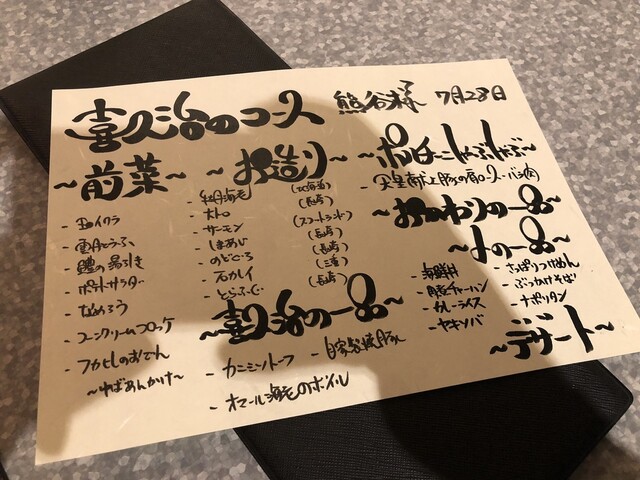 喜久治のコース
熊谷様 7月28日
~前菜~
- 皿イクラ
- 雪月とうふ
- 鱧の湯引き
- ポテトサラダ
- なめろう
- コーンクリームコロッケ
- フカヒレのおでん
~ゆばあんかけ~
~お造り~
- 牡丹海老 (北海道)
- 大トロ (長崎)
- サーモン (スコットランド)
- しまあじ (長崎)
- のどぐろ (長崎)
- 石カレイ (三重)
- とらふぐ (長崎)
~喜久治の一品~
- カニミソトーフ
- 自家製焼豚
- オマール海老のボイル
~ポルチーニしゃぶしゃぶ~
- 天皇献上豚の肩ロース・バラ肉
~おかわりの一品~
~〆の一品~
- 海鮮丼
- 豚煮チャーハン
- カレーライス
- ヤキソバ
- さっぱりつけめん
- ぶっかけそば
- ナポリタン
~デザート~